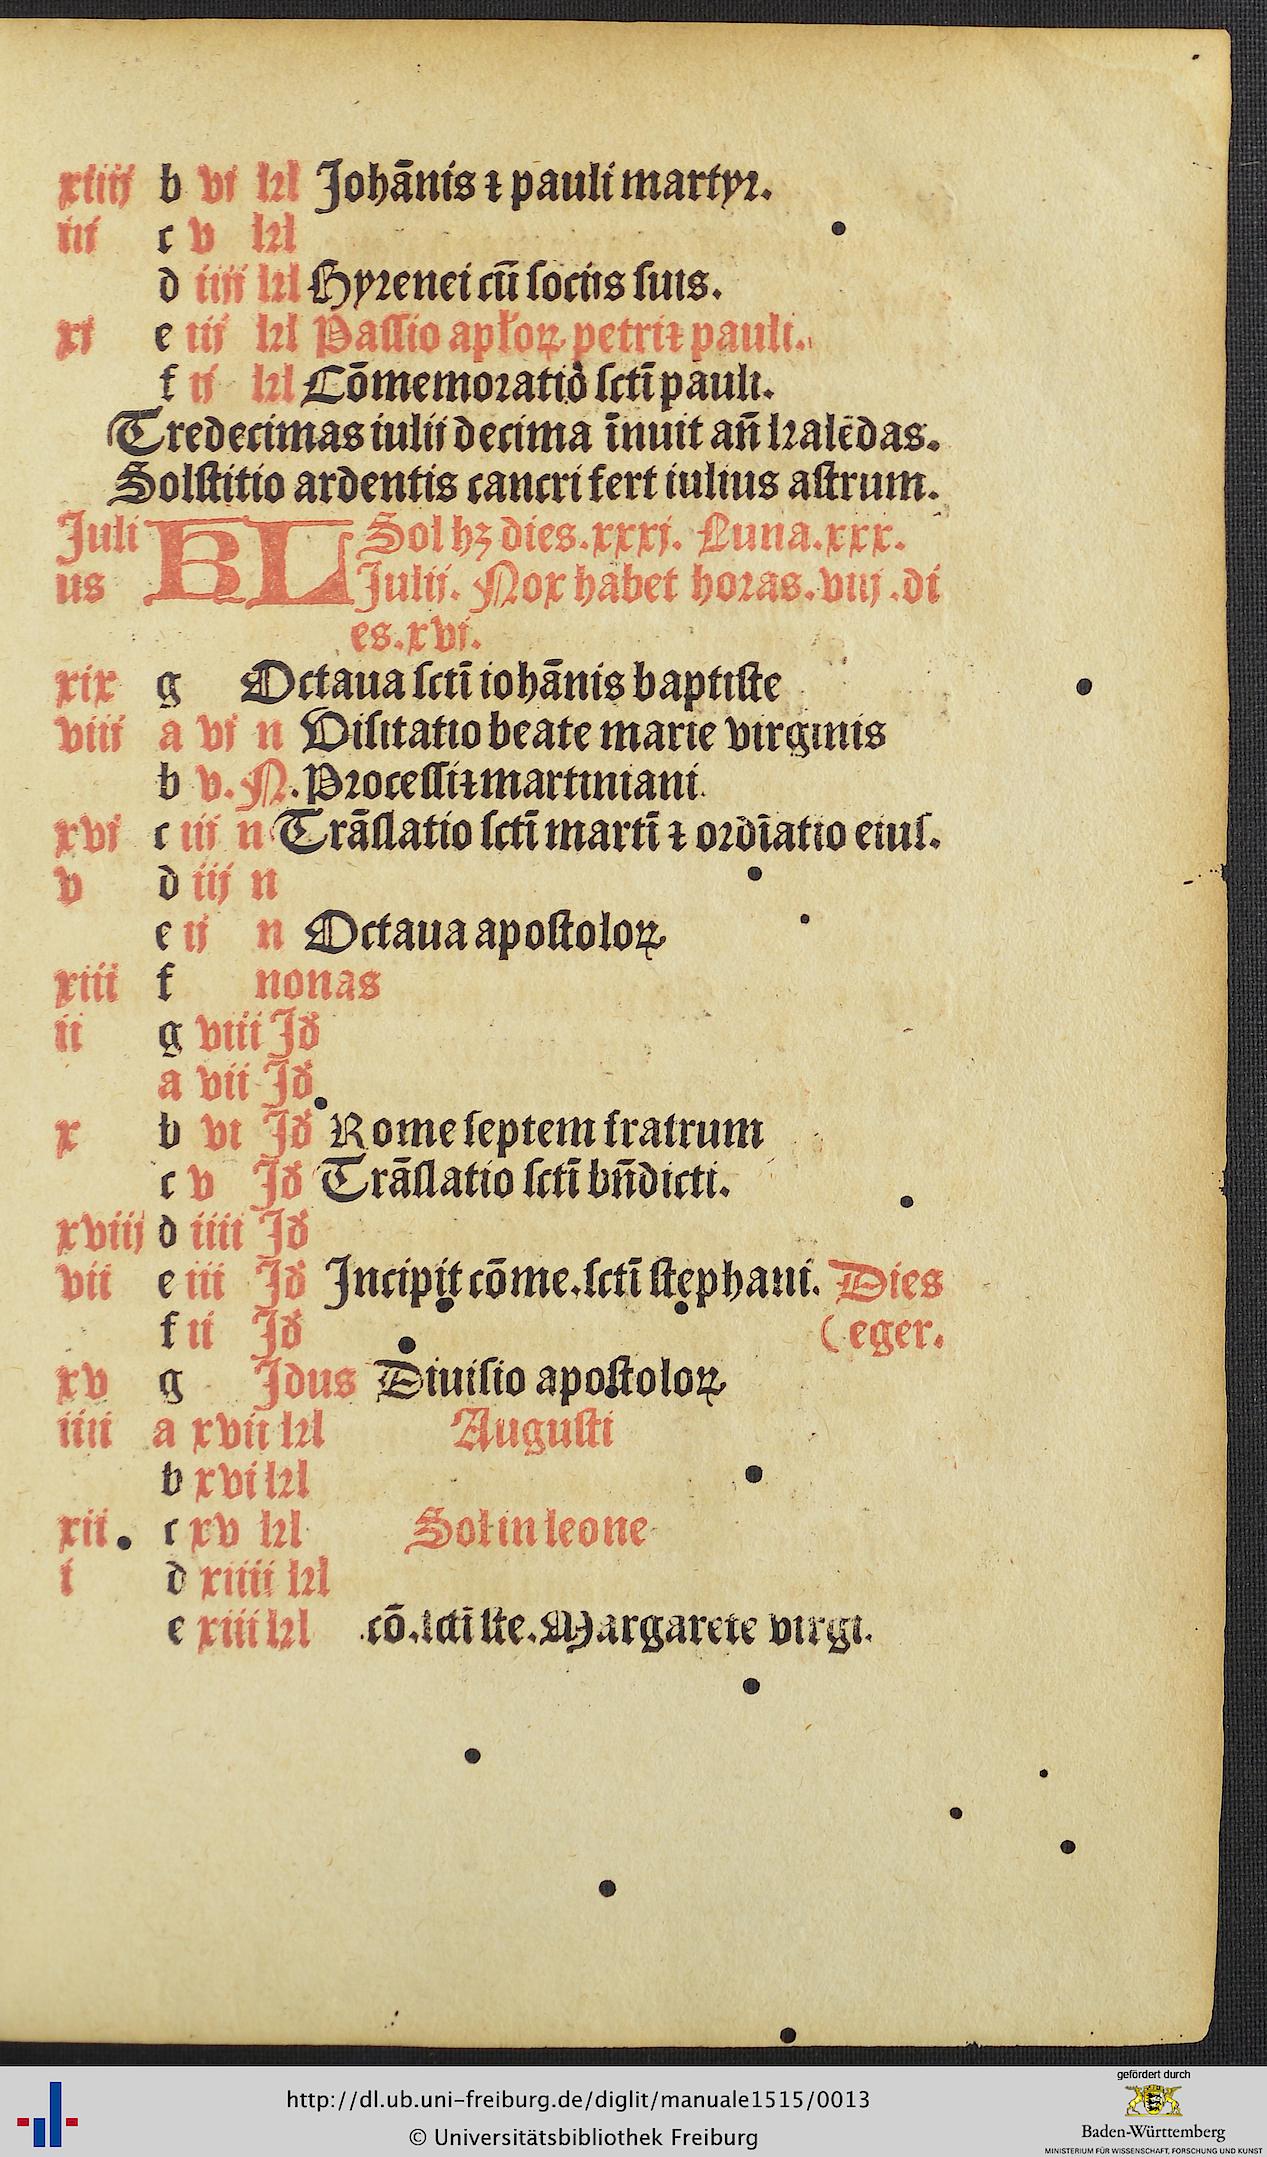 xiiij b vi kl Johānis ⁊ pauli martyꝛ.
iii c v kl
d iiij kl Hyꝛenei cū ſociis ſuis.
xi e iij kl Paſſio apl'oꝝ petri⁊ pauli.
f ij kl Cōmemoꝛatiō ſctī pauli.
Tredecimas iulii decima īnuit an̄ kalēdas.
Solſtitio ardentis cancri fert iulius aſtrum.
Juli KL Sol hꝫ dies.xxxj. Luna.xxx.
us Julij. Nox habet hoꝛas.viij.di
es.xvi.
xix g Octaua ſctī iohānis baptiſte
viii a vi n Viſitatio beate marie virginis
b v. N. Pꝛoceſſi⁊martiniani.
xvi c iij n Trāſlatio ſctī martī ⁊ oꝛdīatio eiuſ.
v d iij n
e ij n Octaua apoſtoloꝝ
xiii f nonas
ii g viii Jd̄
a vii Jd̄
x b vi Jd̄ Rome ſeptem fratrum
c v Jd̄ Trāſlatio ſctī bn̄dicti.
xviij d iiii Jd̄
vii e iii Jd̄ Incipit cōme.ſctī ſtephani. Dies
f ii Jd̄ (eger.
xv g Jdus Diuiſio apoſtoloꝝ
iiii a xvii kl Auguſti
b xvi kl
xii. c xv kl Sol in leone
i d xiiii kl
e xiii kl cō.ſctī ſte.Margarete virgi.
http://dl.ub.uni-freiburg.de/diglit/manuale1515/0013
© Universitätsbibliothek Freiburg
gefördert durch
Baden-Württemberg
MINISTERIUM FÜR WISSENSCHAFT, FORSCHUNG UND KUNST